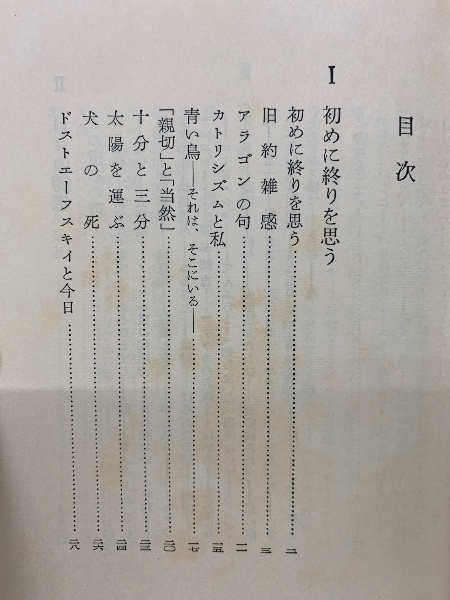 目次
I 初めに終りを思う
初めに終りを思う…………二
旧約雑感…………三
アラゴンの句…………一一
カトリシズムと私…………一五
青い鳥──それは、そこにいる──…………一七
「親切」と「当然」…………二〇
十分と三分…………二三
太陽を運ぶ…………二四
犬の死…………二六
ドストエーフスキイと今日…………二八